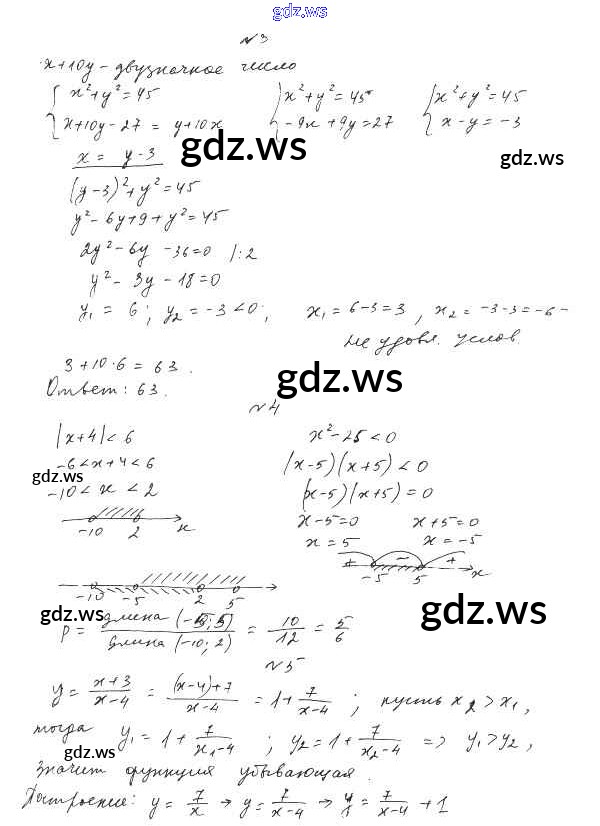 gdz.ws
№3
x+10y - двузначное число
{ x²+y²=45 { x²+y²=45 { x²+y²=45
{ x+10y-27 = y+10x { -9x+9y=27 { x-y=-3
x = y-3
gdz.ws
gdz.ws
(y-3)²+y²=45
y²-6y+9+y²=45
2y²-6y-36=0 /:2
y²-3y-18=0
y₁ = 6; y₂ = -3<0; x₁=6-3=3, x₂=-3-3=-6 -
не удовл. услов.
3+10·6=63.
Ответ: 63.
gdz.ws
№4
|x+4|<6 x²-25<0
-6<x+4<6 (x-5)(x+5)<0
gdz.ws
-10<x<2 (x-5)(x+5)=0
x-5=0 x+5=0
x=5 x=-5
-10 2 x + - + -5 5 x
-10 -5 2 5
gdz.ws
gdz.ws
P = длина (-5; 5) / длина (-10; 2) = 10/12 = 5/6
№5
y = (x+3)/(x-4) = ((x-4)+7)/(x-4) = 1 + 7/(x-4); пусть x₂>x₁,
тогда y₁ = 1 + 7/(x₁-4); y₂ = 1 + 7/(x₂-4) => y₁>y₂,
gdz.ws
gdz.ws
значит функция убывающая.
Построение: y = 7/x → y = 7/(x-4) → y = 7/(x-4) + 1